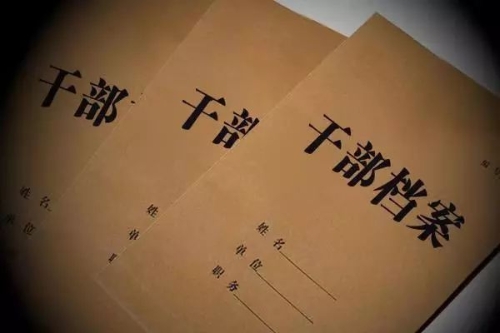 干部
姓名
单位
干部
姓
单
干部档案
姓名
单位
职务